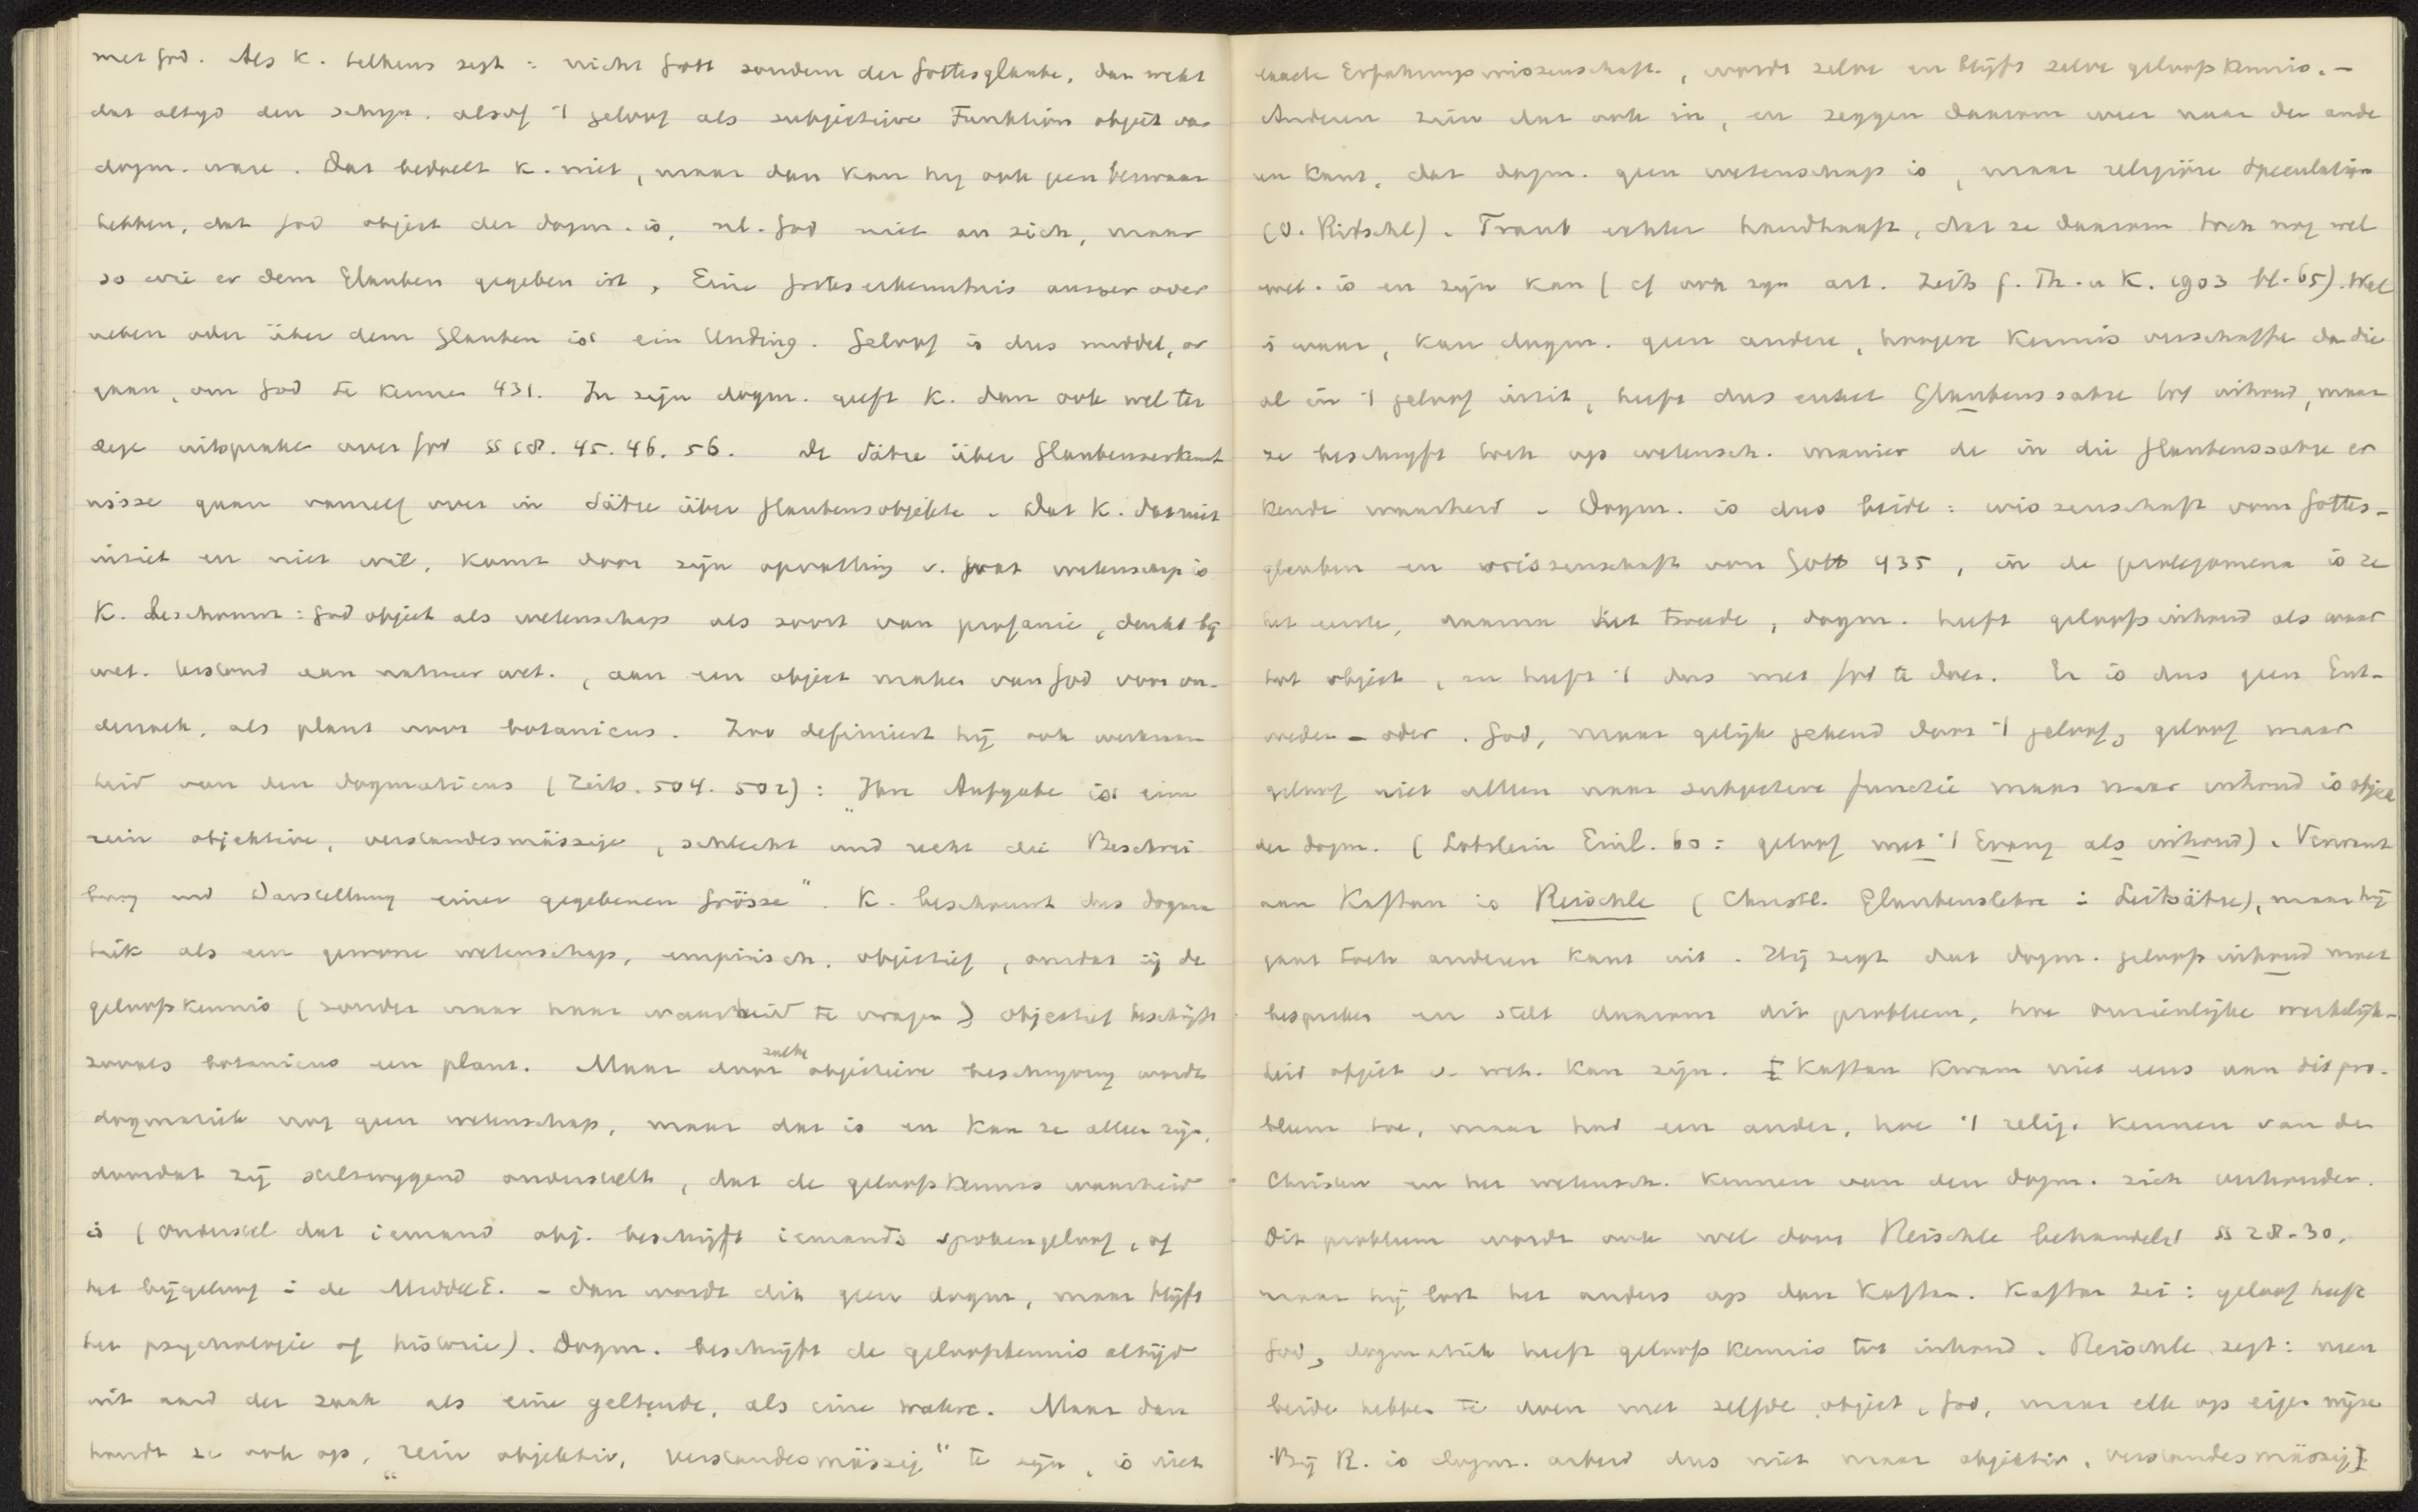 met God. Als K. telkens zegt: nicht Gott sondern der Gottesglaube, dan wekt
dat altyd den schyn, alsof 't geloof als subjectieve Funktion object van
dogm. ware. Dat bedoelt K. niet, maar dan kan hy ook geen bezwaar
hebben, dat God object der dogm. is, nl. God niet an sich, maar
so wie er dem Glauben gegeben ist, Eine Gotteserkenntnis ausser oder
neben oder über dem Glauben ist ein Unding. Geloof is dus middel, or
gaan, om God te kennen 431. In zijn dogm. geeft K. dan ook wel ter
dege uitspraken over God §§ 18. 45. 46. 56. De Sätze über Glaubenserkennt
nisse gaan vanzelf over in Sätze über Glaubensobjekte. Dat K. dat niet
inziet en niet wil, komt door zijn opvatting v. wat wetenschap is
K. beschouwt: God object als wetenschap als soort van profanie, denkt bij
wet. bestand aan natuur wet., aan een object maken van God voor on-
derzoek, als plant voor botanicus. Zoo definieert hij ook werkzaam
heid van den dogmaticus (Zeits. 504. 502): „Ihre Aufgabe ist eine
rein objektive, verstandesmässige, schlecht und recht die Beschrei
bung und Darstellung einer gegebenen Grösse". K. beschouwt dus dogma
tiek als een gewone wetenschap, empirisch, objectief, omdat zij de
geloofskennis (zonder naar haar waarheid te vragen) objectief beschrijft
zooals botanicus een plant. Maar door zulke objectieve beschryving wordt
dogmatiek nog geen wetenschap, maar dat is en kan ze alleen zijn,
doordat zij stilzwygend onderstelt, dat de geloofskennis waarheid
is (onderstel dat iemand obj. beschrijft iemands spokengeloof, of
het bijgeloof i. de MiddelE. - dan wordt dit geen dogm, maar blijft
het psychologie of historie). Dogm. beschrijft de geloofskennis altijd
uit aard der zaak als eine geltende, als eine wahre. Maar dan
houdt ze ook op, „rein objektiv, verstandesmässig" te zijn, is niet
exacte Erfahrungswissenschaft, wordt zelve en blijft zelve geloofskennis. -
Anderen zien dat ook in, en zeggen daarom weer naar den ande
ren kant, dat dogm. geen wetenschap is, maar religiöse Speculation
(O. Ritschl). Traub echter handhaaft, dat ze daarom toch nog wel
wet. is en zijn kan (cf ook zyn art. Zeits f. Th. u K. 1903 bl. 65). Wel
is waar, kan dogm. geen andere, hoogere kennis verschaffen dan die
al in 't geloof inzit, heeft dus enkel Glaubenssätze tot inhoud, maar
ze beschrijft toch op wetensch. manier de in die Glaubenssätze er
kende waarheid. Dogm. is dus beide: wissenschaft vom Gottes-
glauben en wissenschaft von Gott 435, in de prolegomena is ze
het eerste, daarna het tweede, dogm. heeft geloofsinhoud als waar
tot object, en heeft 't dus met God te doen. Er is dus geen Ent-
weder - oder. God, maar gelijk gekend door 't geloof, geloof maar
geloof niet alleen naar subjectieve functie maar naar inhoud is object
der dogm. (Lobstein Einl. 60: geloof met 't Evang als inhoud). Verwant
aan Kaftan is Reischle (Christl. Glaubenslehre i Leitsätze), maar hij
gaat toch anderen kant uit. Hij zegt dat dogm. geloofsinhoud moet
bespreken en stelt daarom dit probleem, hoe onzienlijke werkelijk-
heid object v. wet. kan zijn. Kaftan kwam niet eens aan dit pro-
bleem toe, maar had een ander, hoe 't relig. kennen van den
Christen en het wetensch. kennen van den dogm. zich verhouden.
Dit probleem wordt ook wel door Reischle behandeld §§ 28-30,
maar hij lost het anders op dan Kaftan. Kaftan zei: geloof heeft
God, dogmatiek heeft geloofskennis tot inhoud. Reischle zegt: neen
beide hebben te doen met zelfde object, God, maar elk op eigen wijze
Bij R. is dogm. arbeid dus niet maar objektiv, verstandesmässig